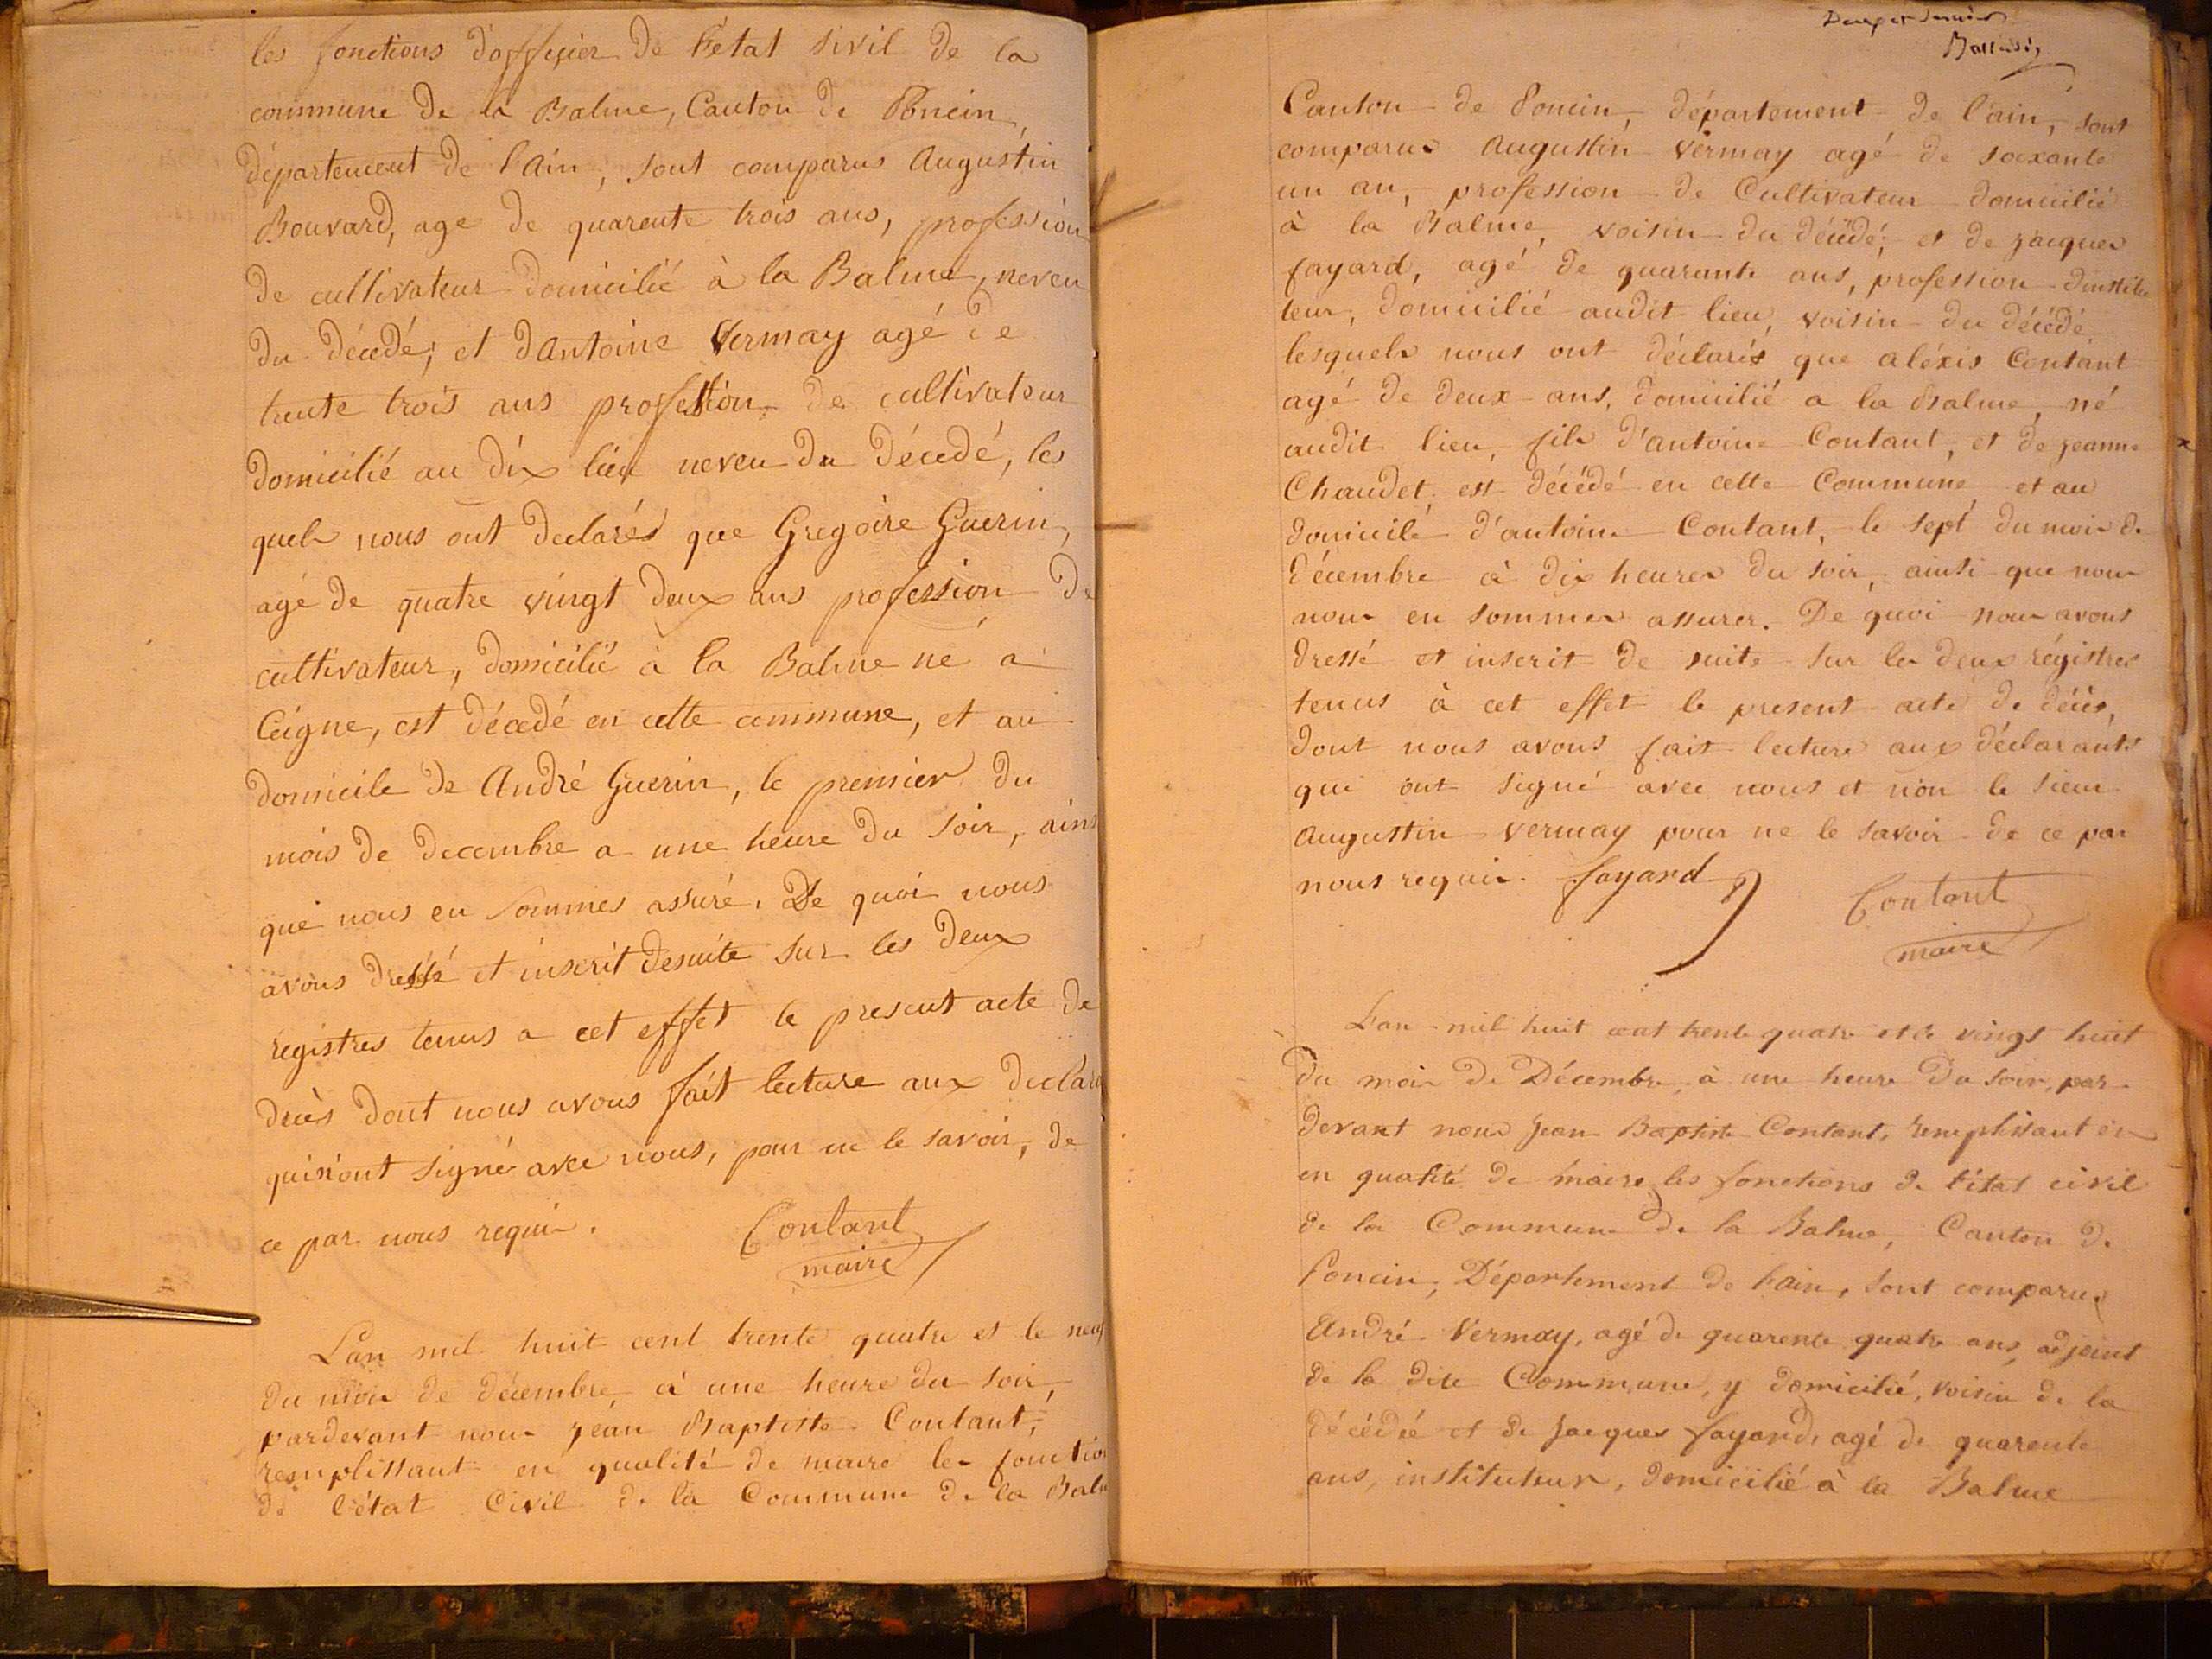 les fonctions d'offisier de l'état sivil de la
commune de la Balme, Canton de Poncin,
département de l'Ain, sont comparus Augustin
Bouvard, age de quarente trois ans, profession
de cultivateur domicilié à la Balme, neveu
du décedé; et dantoine Vermay agé de
trente trois ans profession de cultivateur
domicilié au dix lieu neveu du décedé, les
quels nous ont declarés que Gregoire Guerin,
agé de quatre vingt deux ans profession de
cultivateur, domicilié à la Balme né a
Ceigne, est décedé en cette commune, et au
domicile de André Guerin, le premier du
mois de decembre a une heure du soir, ains
que nous en sommes assuré. De quoi nous
avons dressé et inscrit desuite sur les deux
registres tenus a cet effet le present acte de
deces dont nous avons fait lecture aux declara
qui n'ont signé avec nous, pour ne le savoir, de
ce par nous requis. Coutant
maire
L'an mil huit cent trente quatre et le neuf
du mois de décembre, à une heure du soir,
pardevant nous jean Baptiste Coutant,
remplissant en qualité de maire les fonction
de l'état Civil de la Commune de la Balm
Canton de Poncin, département de l'ain, sont
comparus Augustin Vermay agé de soixante
un an, profession de Cultivateur domicilié
à la Balme, voisin du décédé; et de jacques
fayard, agé de quarante ans, profession d'institu
teur, domicilié audit lieu, voisin du décédé
lesquels nous ont déclarés que aléxis Coutant
agé de deux ans, domicilié a la Balme, né
audit lieu, fils d'antoine Coutant, et de jeanne
Chaudet est décédé en cette Commune et au
domicile d'antoine Coutant, le sept du mois de
décembre à dix heures du soir, ainsi que nous
nous en sommes assurer. De quoi nous avons
dressé et inscrit de suite sur les deux régistres
tenus à cet effet le present acte de décès,
dont nous avons fait lecture aux déclarants
qui ont signé avec nous et non le sieur
augustin vermay pour ne le savoir de ce par
nous requis. fayard Coutant
maire
L'an mil huit cent trente quatre et le vingt huit
du mois de Décembre, à une heure du soir, par
devant nous Jean Baptiste Coutant, remplissant en
en qualité de maire les fonctions de l'état civil
de la Commune de la Balme, Canton de
Poncin, Département de l'ain, sont comparus
André Vermay, agé de quarente quatre ans, adjoint
de la dite Commune, y domicilié, voisin de la
décédée et de Jacques fayard, agé de quarente
ans, instituteur, domicilié à la Balme